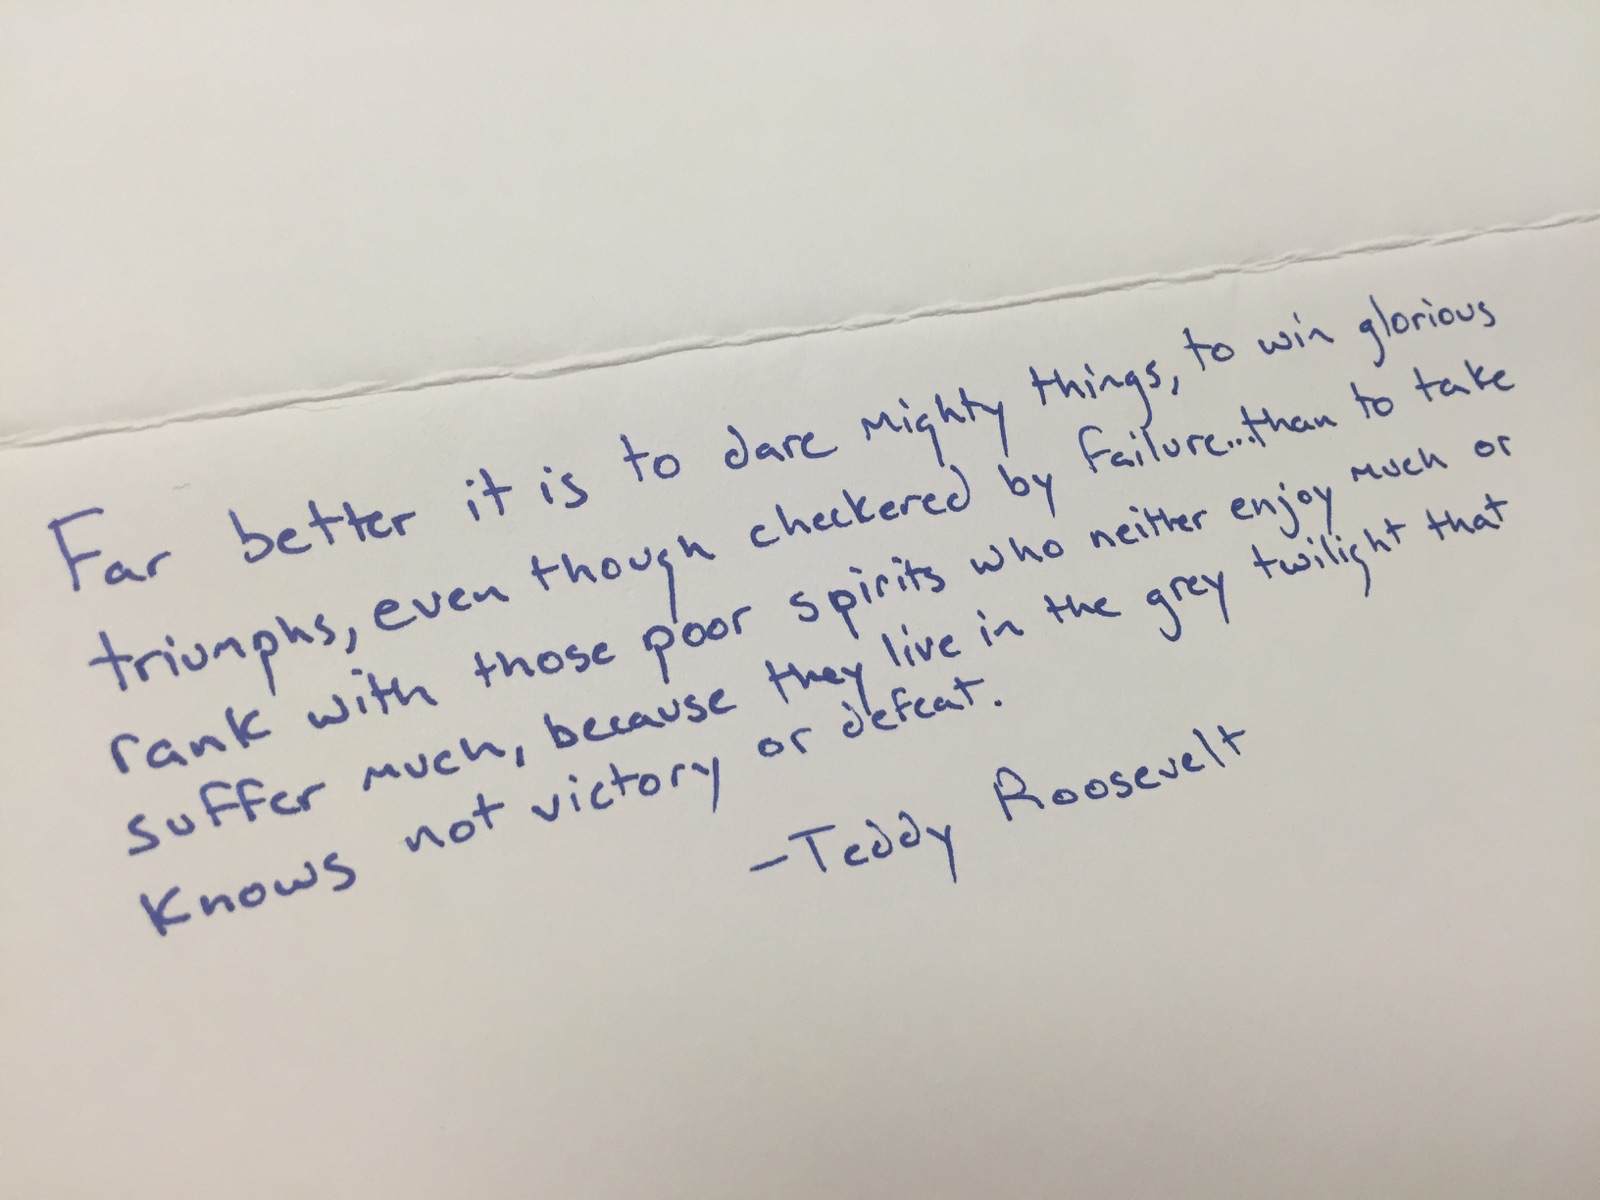 Far better it is to dare mighty things, to win glorious
triumphs, even though checkered by failure...than to take
rank with those poor spirits who neither enjoy much or
suffer much, because they live in the grey twilight that
knows not victory or defeat.
-Teddy Roosevelt